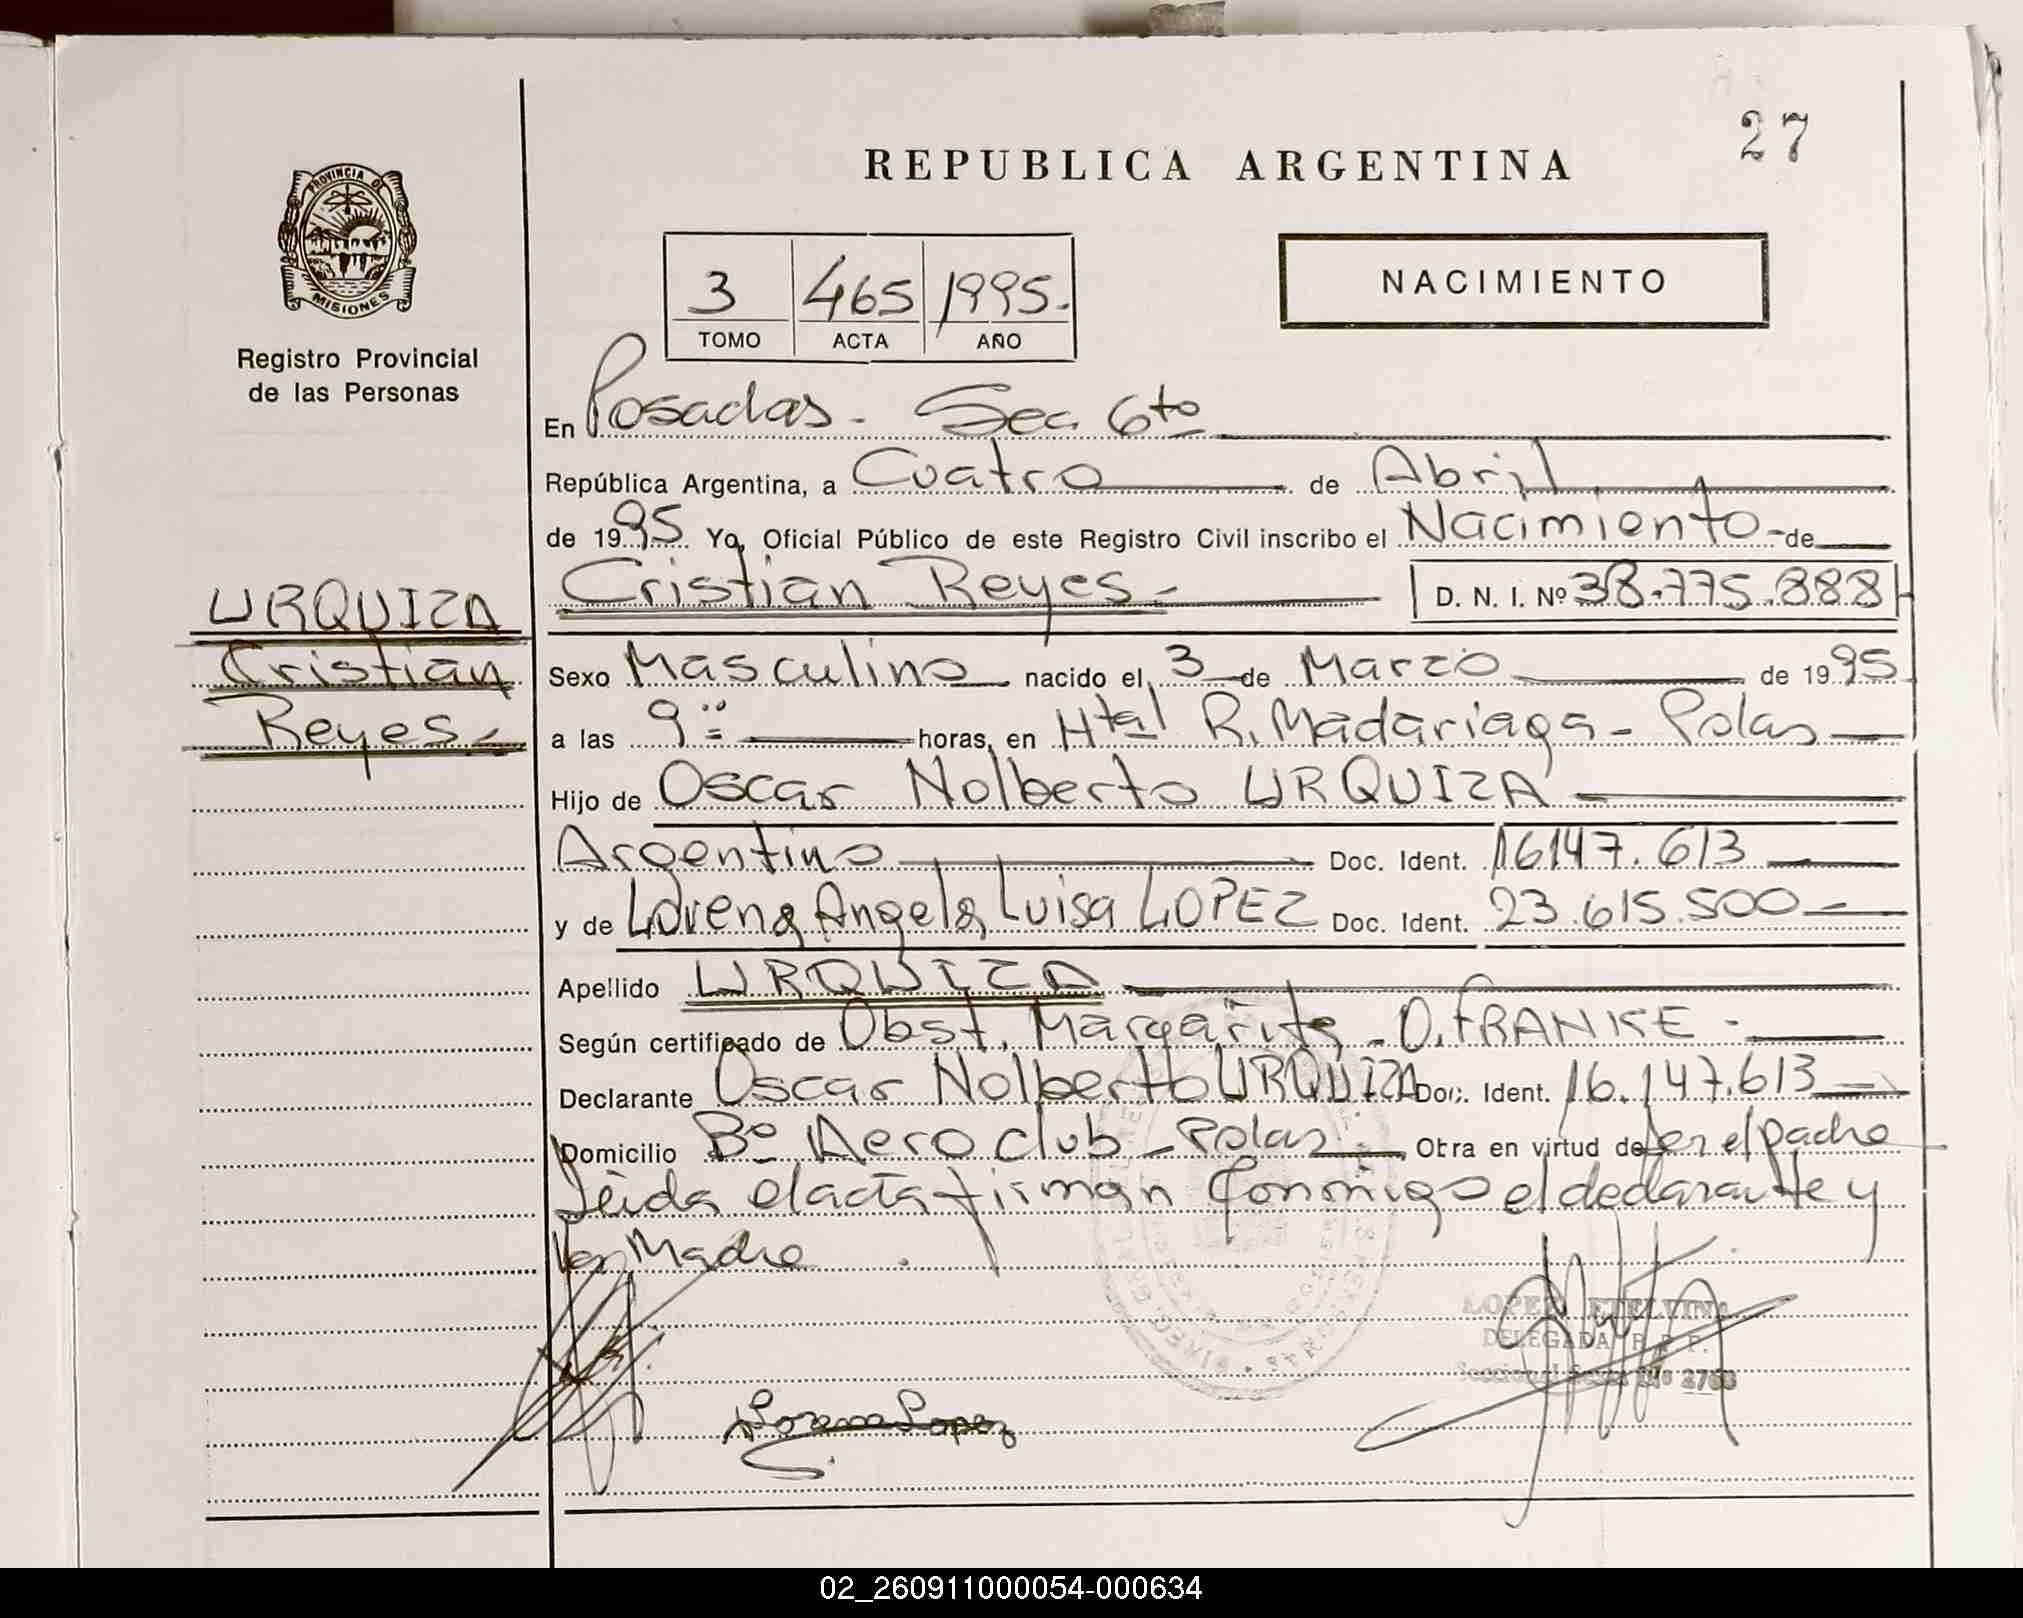 27
REPUBLICA ARGENTINA
PROVINCIA DE
MISIONES
Registro Provincial
de las Personas
3 465 1995.
TOMO ACTA AÑO
NACIMIENTO
En Posadas - Sec. 6to
República Argentina, a Cuatro de Abril
de 1995 Yo, Oficial Público de este Registro Civil inscribo el Nacimiento - de
URQUIZA
Cristian
Reyes -
Cristian Reyes - D. N. I. Nº 38.775.888
Sexo Masculino nacido el 3 de Marzo de 1995
a las 9 horas, en Htal R. Madariaga - Pdas
Hijo de Oscar Nolberto URQUIZA
Argentino Doc. Ident. 16147.613
y de Lorena Angela Luisa LOPEZ Doc. Ident. 23.615.500 -
Apellido URQUIZA
Según certificado de Obst. Margarita O. FRANKE -
Declarante Oscar Nolberto URQUIZA Doc. Ident. 16.147.613
Domicilio Bº Aero Club - Pdas Obra en virtud de ser el padre
Leida el acta firman Conmigo el declarante y
la Madre.
LOPEZ ETELVINA
DELEGADA R. P. P.
Seccional Sexta Nº 2768
Lorena Lopez
02_260911000054-000634